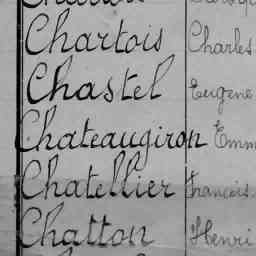 Chartois Charles
Chastel Eugene
Chateaugiron Emm
Chatellier Francois
Chatton Henri